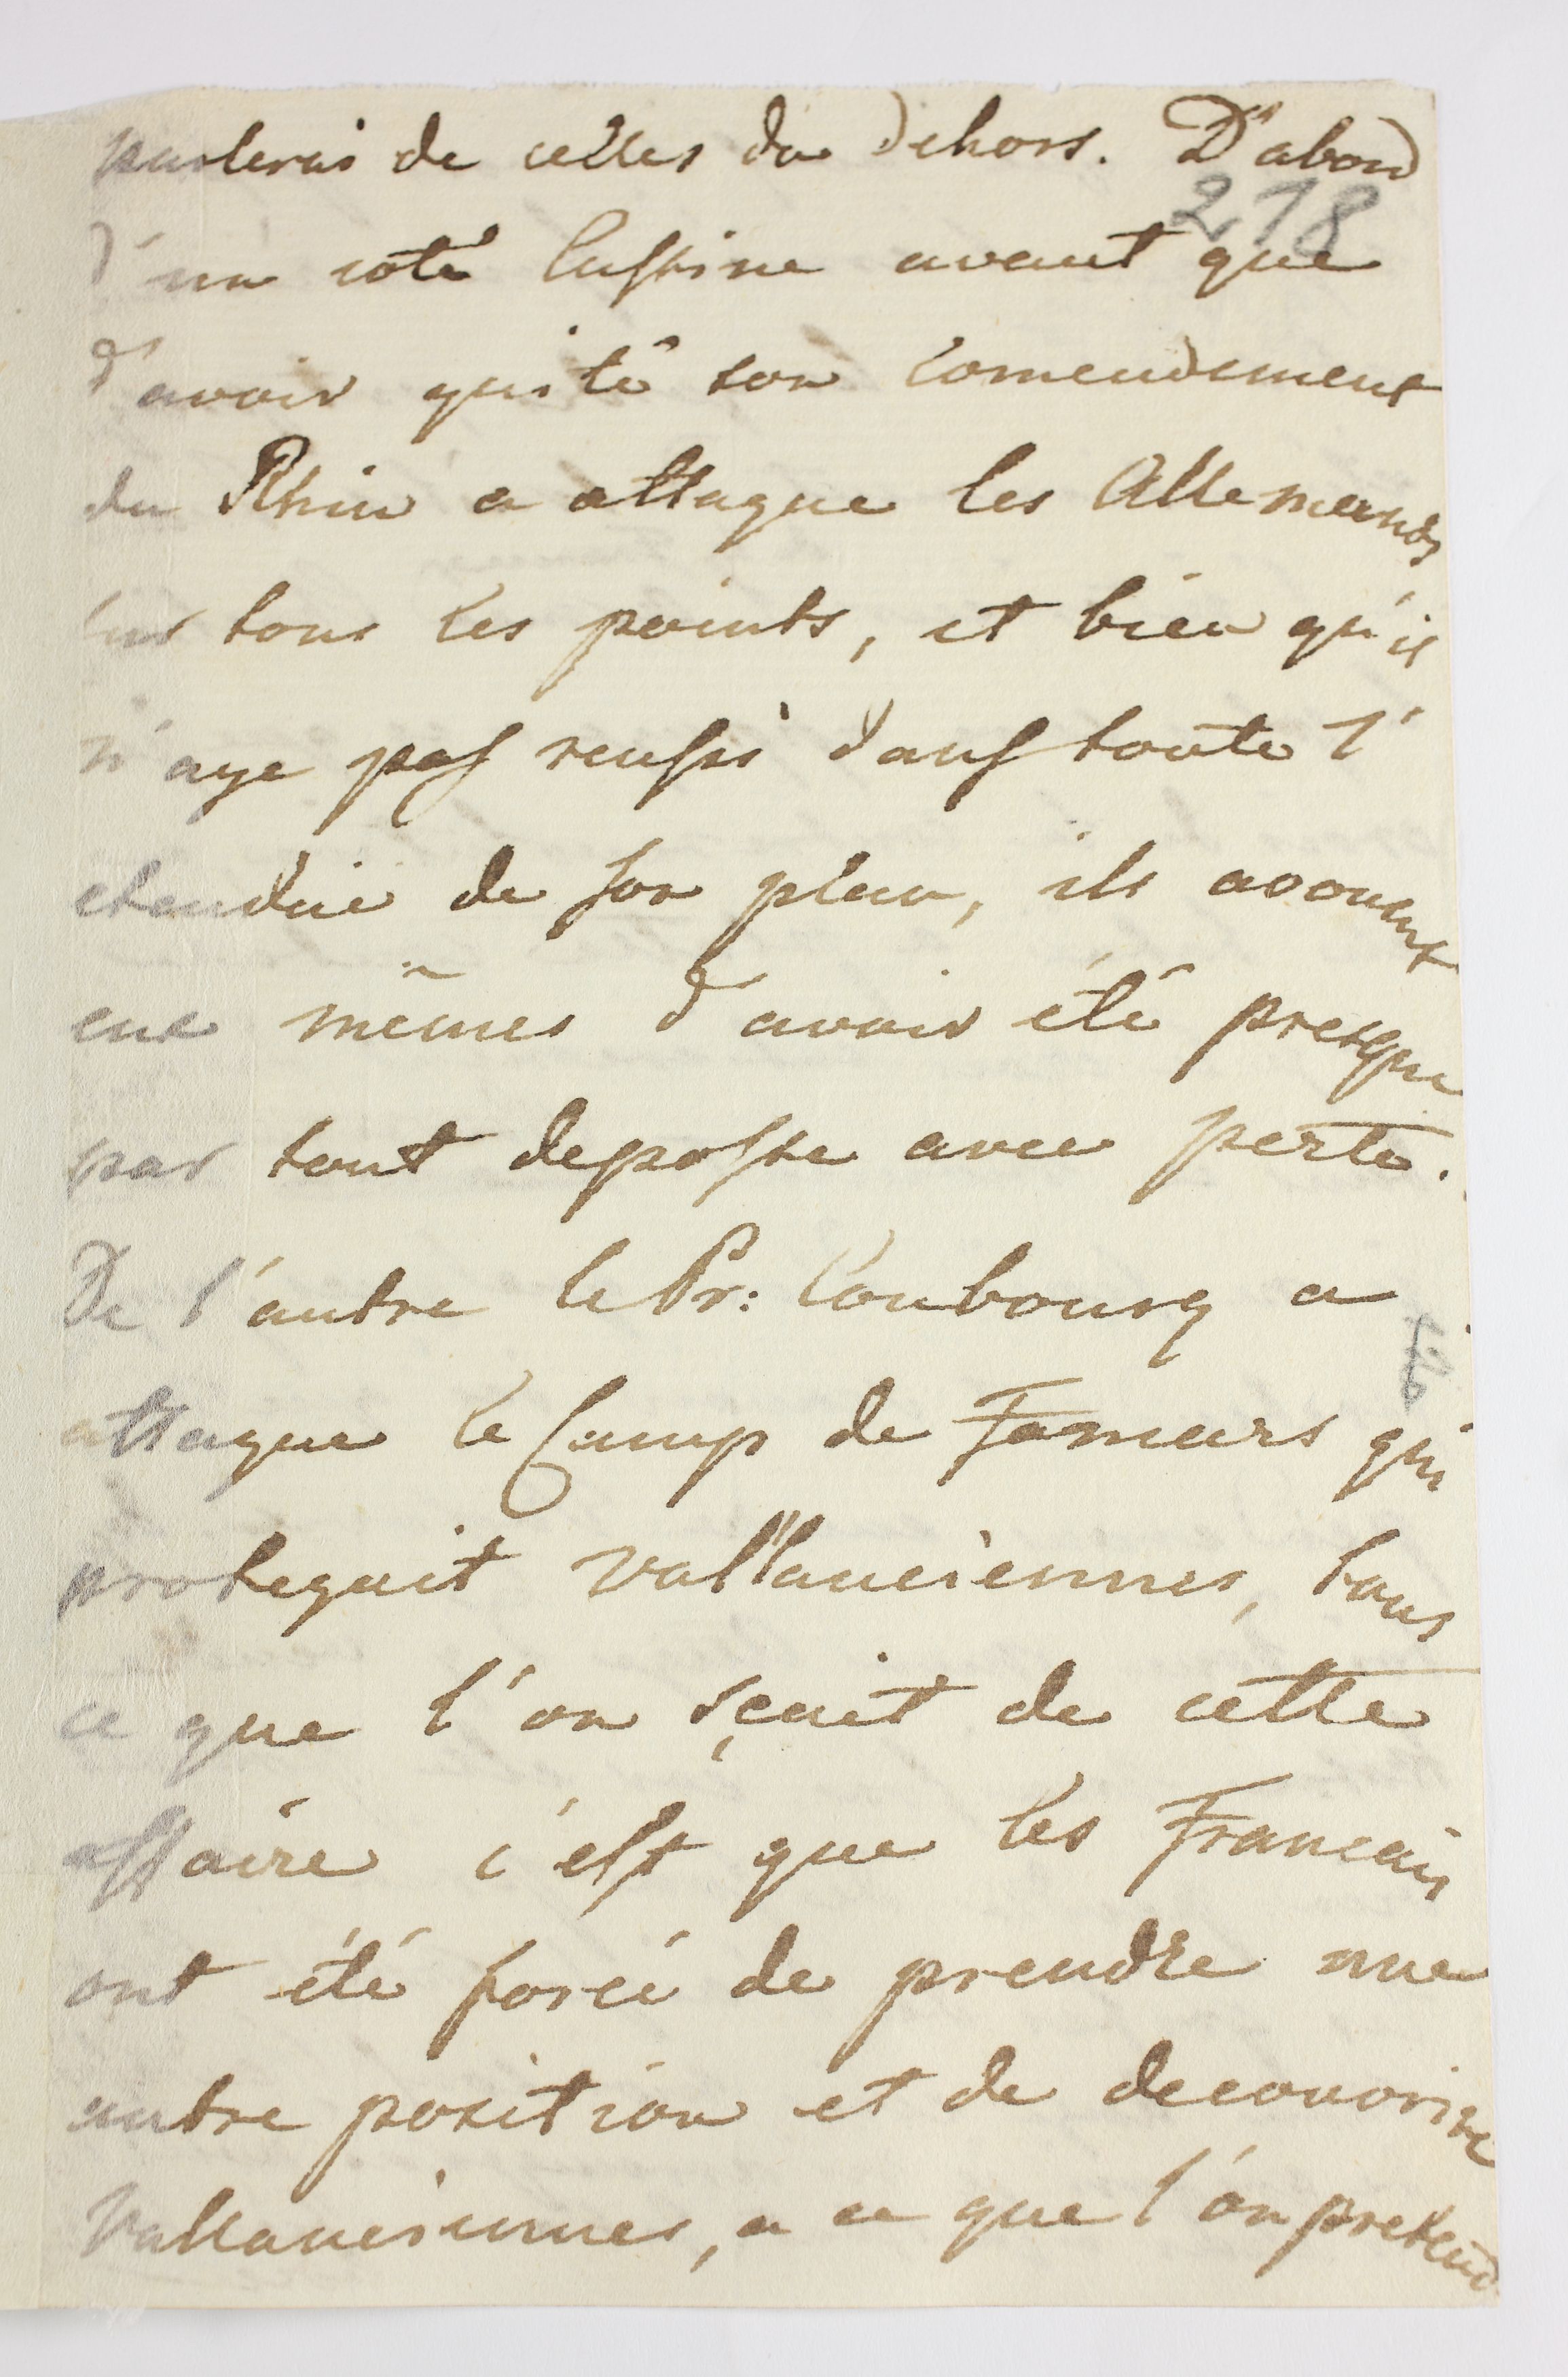 parlerai de celles du dehors. D'abord
218
d'un coté Custine avant que
d'avoir quité son comendement
du Rhin a attaque les Allemands
sur tous les points, et bien qu'il
n'aye pas reussi dans toute l'
etendüe de son plan, ils avouent
eux mêmes d'avoir été presque
par tout deposte avec perte.
De l'autre le Pr: Coubourg a
attaque le Camp de Fameurs qui
protegait Vallanciennes, tous
ce que l'on sçait de cette
affaire c'est que les Francais
ont été forcé de prendre une
autre position et de decouvrire
Vallanciennes, a ce que l'on pretend